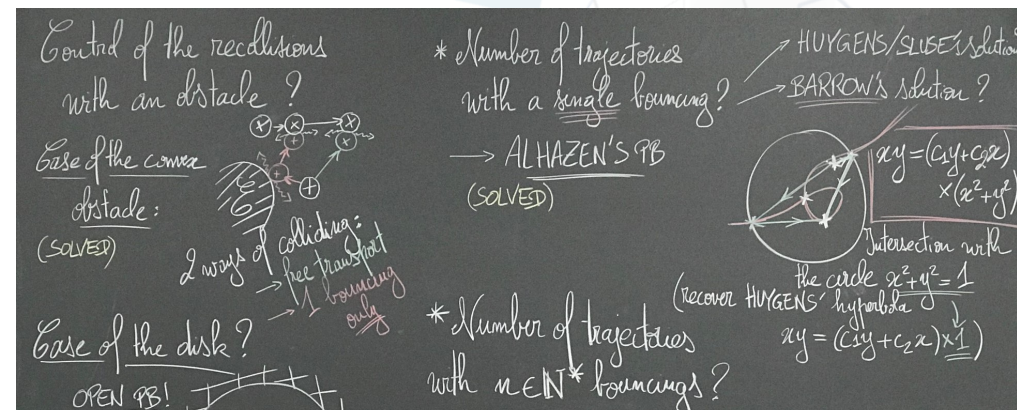 Control of the recollisions
with an obstacle ?
Case of the convex
obstacle :
(SOLVED)
2 ways of colliding :
→ free transport
→ 1 bouncing
only
Case of the disk ?
OPEN PB!
* Number of trajectories
with a single bouncing ?
→ HUYGENS/SLUSE'S solution
→ BARROW'S solution ?
→ ALHAZEN'S PB
(SOLVED)
xy = (c1y + c2x)
× (x² + y²)
Intersection with
the circle x² + y² = 1
(recover HUYGENS' hyperbola
xy = (c1y + c2x) × 1)
* Number of trajectories
with n ∈ ℕ* bouncings ?